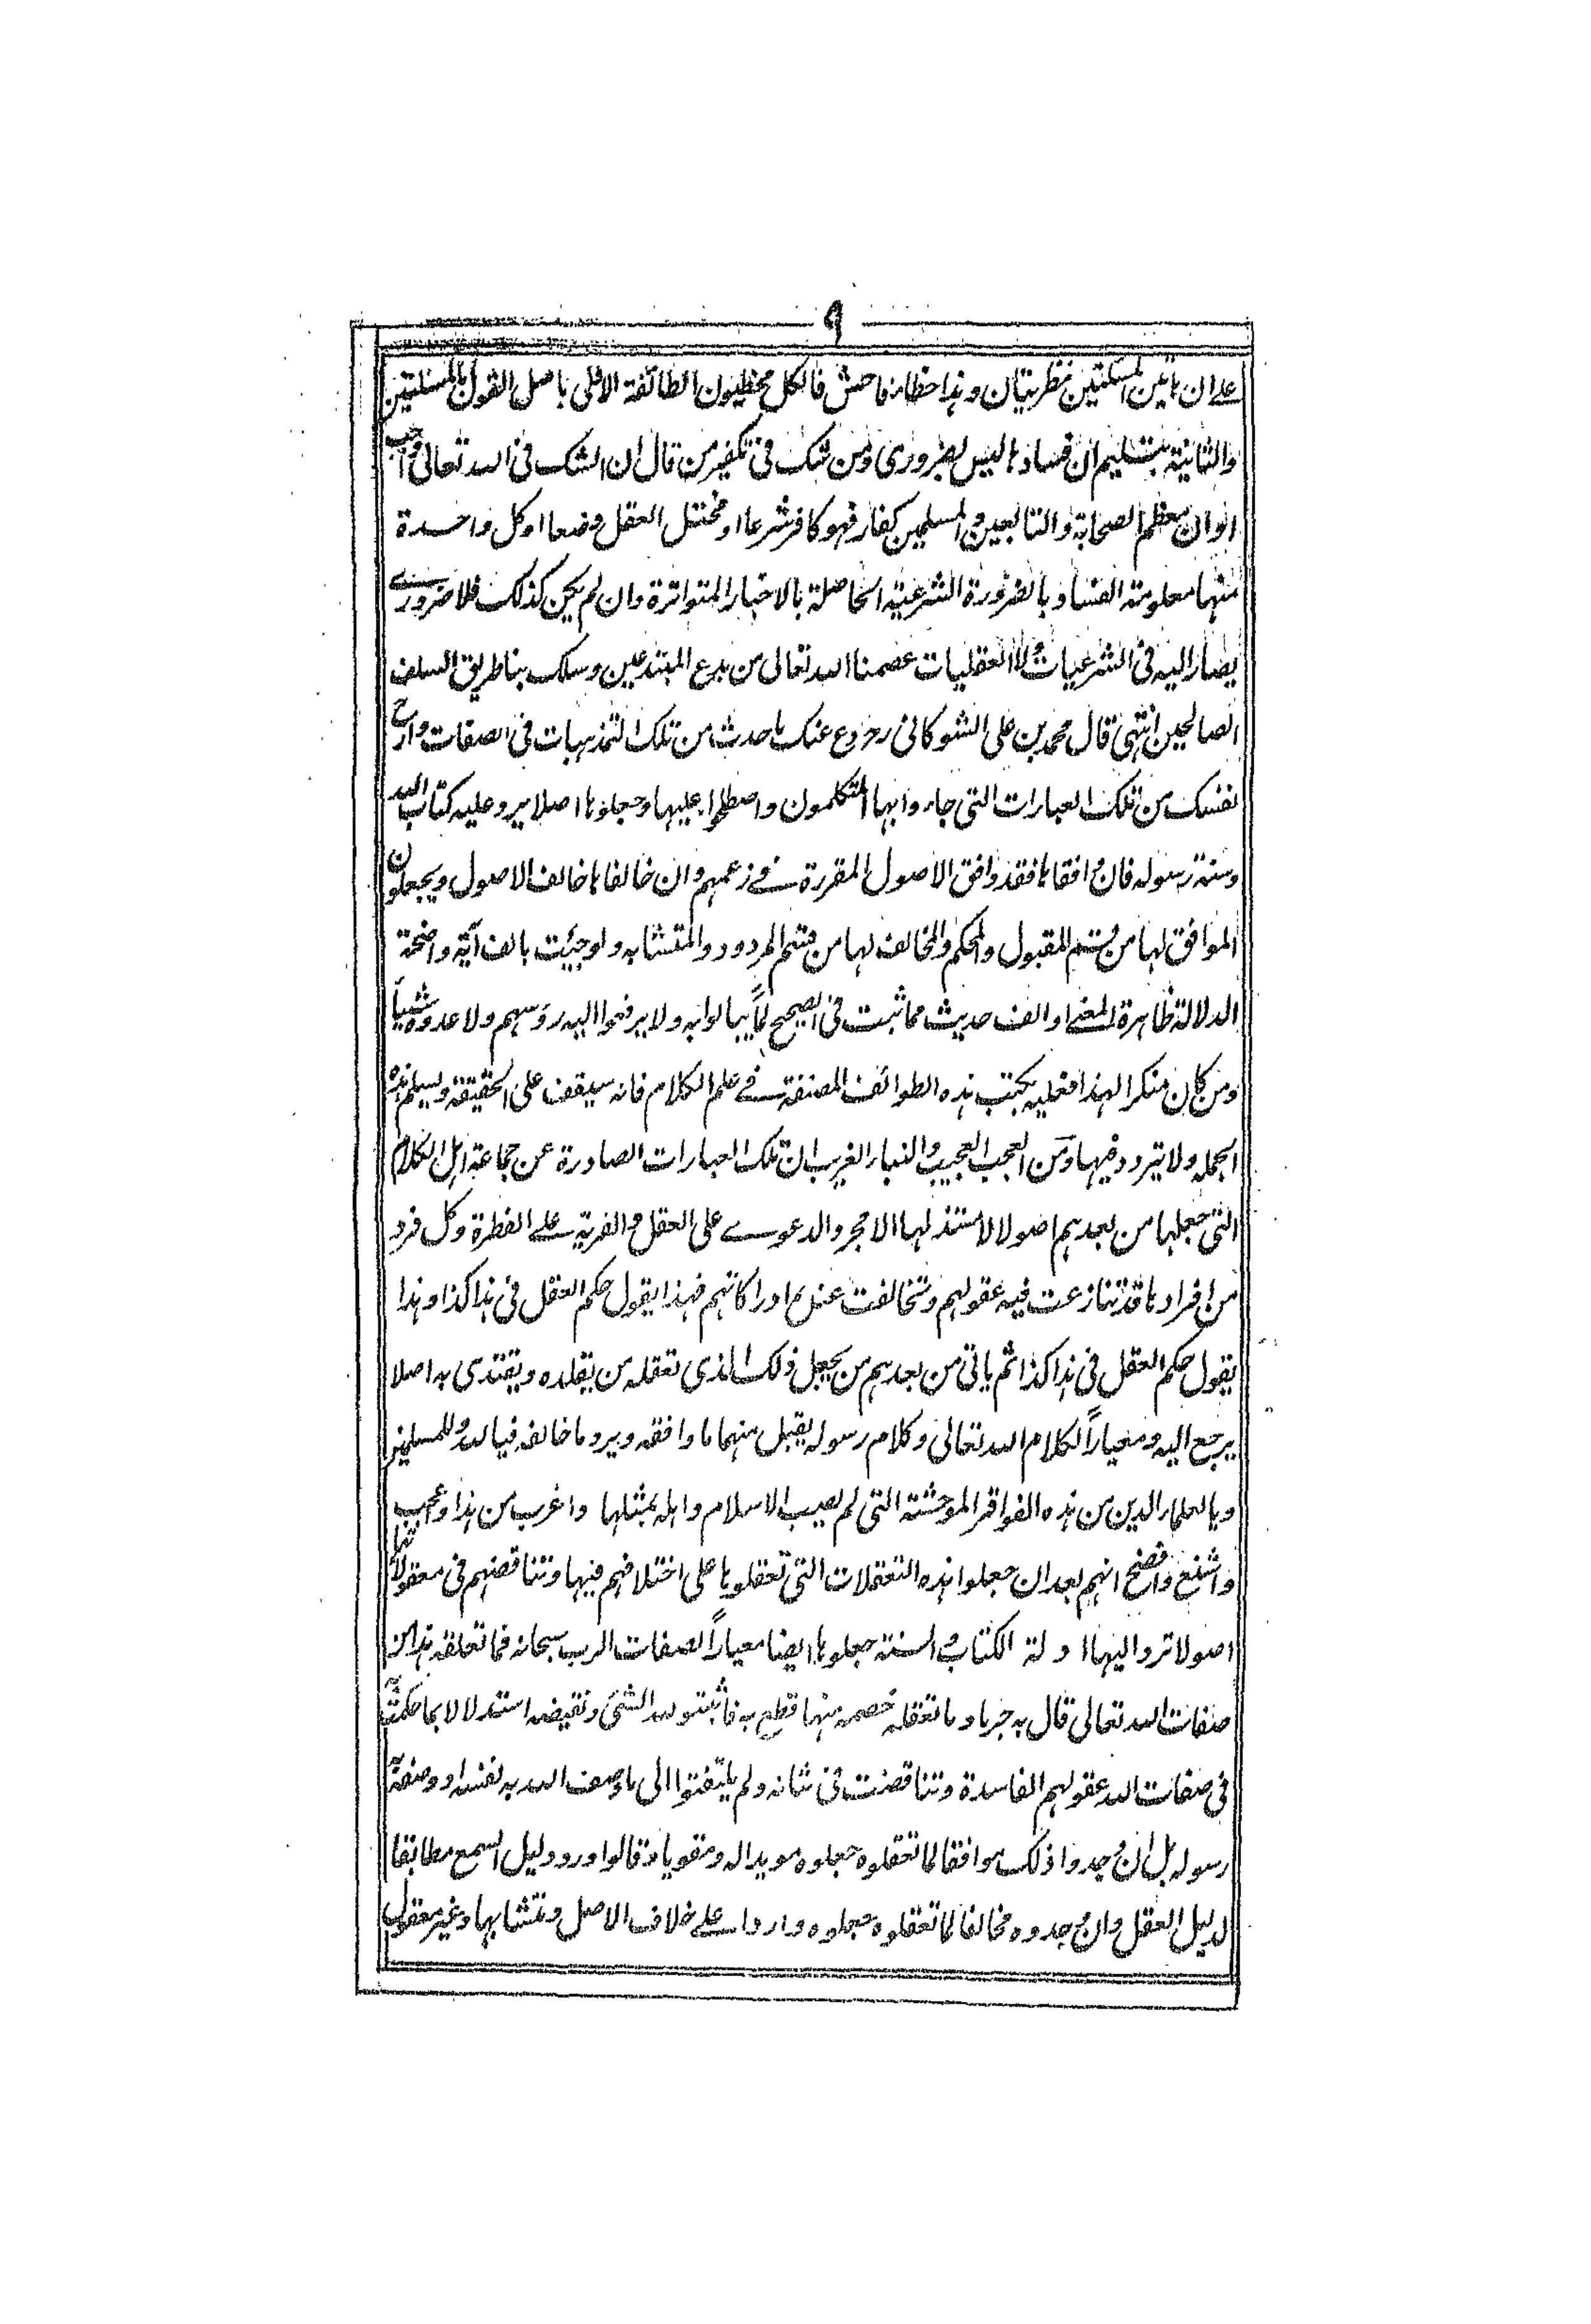 ٩
على ان هاتين المسئلتين نظريتان وهذا خطاء فاحش فالكل مخطيون الطائفة الاولى باصل القول بالمسئلتين
والثانية بتسليم ان فسادها ليس بضرورى ومن شك فى تكفير من قال ان الشك فى الله تعالى واجب
او ان معظم الصحابة والتابعين والمسلمين كفار فهو كافر شرعا او مختل العقل وضعا او كل واحدة
منها معلومة الفساد بالضرورة الشرعية الحاصلة بالاخبار المتواترة وان لم يكن كذلك فلا ضرورى
يصار اليه فى الشرعيات ولا العقليات عصمنا الله تعالى من بدع المبتدعين وسلك بنا طريق السلف
الصالحين انتهى قال محمد بن على الشوكانى رح ودع عنك ما حدث من تلك التمذهبات فى الصفات وارح
نفسك من تلك العبارات التى جاء وابها المتكلمون واصطلحوا عليها وجعلوها اصلا يرد عليه كتاب الله
وسنة رسوله فان وافقاها فقد وافق الاصول المقررة فى زعمهم وان خالفاها خالف الاصول ويجعلون
الموافق لها من قسم المقبول والمحكم والمخالف لها من قسم المردود والمتشابه ولو جيئت بالف آية واضحة
الدلالة ظاهرة المعنى او الف حديث مما ثبت فى الصحيح لما يبالوا به ولا يرفعوا اليه رؤسهم ولا عدوه شيئاً
ومن كان منكرا لهذا فعليه بكتب هذه الطوائف المصنفة فى علم الكلام فانه سيقف على الحقيقة ويسلم هذه
الجملة ولا يتردد فيها ومن العجب العجيب والنبا الغريب ان تلك العبارات الصادرة عن جماعة اهل الكلام
التى جعلها من بعدهم اصولا لا مستند لها الا مجرد الدعوى على العقل والفرية على الفطرة وكل فرد
من افرادها قد تنازعت فيه عقولهم وتخالفت عنده ادراكاتهم فهذا يقول حكم العقل فى هذا كذا وهذا
يقول حكم العقل فى هذا كذا ثم ياتى من بعدهم من يجعل ذلك الذى تعقله من يقلده ويقتدى به اصلا
يرجع اليه ومعياراً لكلام الله تعالى وكلام رسوله يقبل منهما ما وافقه ويرد ما خالفه فيا لله وللمسلمين
ويا لعلماء الدين من هذه الفواقر الموحشة التى لم يصب الاسلام واهله بمثلها واغرب من هذا واعجب
واشنع وافضح انهم بعد ان جعلوا هذه التعقلات التى تعقلوها على اختلافهم فيها وتناقضهم فى معقولاتها
اصولا ترد اليها ادلة الكتاب والسنة جعلوها ايضا معياراً لصفات الرب سبحانه فما تعلقه هذا من
صفات الله تعالى قال به جزما وما تعقله خصمه منها قطع به فاثبتو لله الشئ ونقيضه استدلالا بما حكمت به
فى صفات الله عقولهم الفاسدة وتناقضت فى شانه ولم يلتفتوا الى ما وصف الله به نفسه او وصفه به
رسوله بل ان وجدوا ذلك موافقا لما تعقلوه جعلوه مويدا له ومقويا وقالوا ورد دليل السمع مطابقا
لدليل العقل وان وجدوه مخالفا لما تعقلوه جعلوه واردا على خلاف الاصل ومتشابها وغير معقول